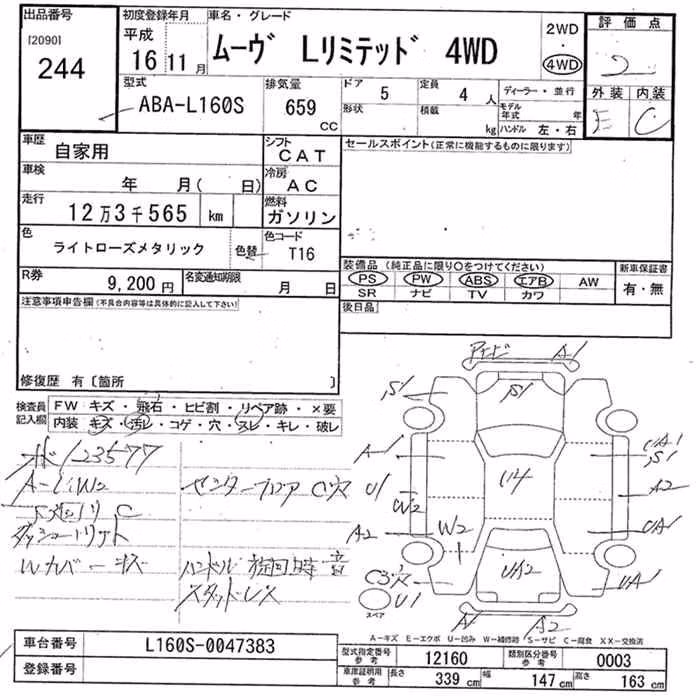 出品番号 初度登録年月 車名・グレード 評価点
[2090] 平成 2WD
244 16年11月 ムーヴ Lリミテッド 4WD ・ 2
4WD
型式 排気量 ドア 定員 ディーラー・並行 外装 内装
ABA-L160S 659 5 4人 モデル年式 年 E C
cc 形状 積載 kg ハンドル 左・右
車歴 自家用 シフト CAT セールスポイント(正常に機能するものに限ります)
車検 年 月( 日) 冷房 AC
走行 12万3千565 km 燃料 ガソリン
色 ライトローズメタリック 色替 色コード T16
装備品(純正品に限り○をつけてください) 新車保証書
R券 9,200円 名変通知期限 月 日 PS PW ABS エアB AW 有・無
SR ナビ TV カワ
注意事項申告欄(不具合内容等は具体的に記入して下さい) 後日品
修復歴 有〔箇所 〕
検査員記入欄 FW キズ・飛石・ヒビ割・リペア跡・×要
内装 キズ・汚レ・コゲ・穴・スレ・キレ・破レ
123577
センターフロア C穴
Wカバーキズ
ハンドル 旋回時 音
スタッドレス
A1
S1 S1
A-1 UA1
S1
U1 W2 A2
A2 W2 UA1
C3穴 UA2 UA1
U1
スペア
A1 A2
A-キズ E-エクボ U-凹み W-補修跡 S-サビ C-腐食 XX-交換済
車台番号 L160S-0047383 型式指定番号 参考 12160 類別区分番号 参考 0003
登録番号 車庫証明用 参考 長さ 339 cm 幅 147 cm 高さ 163 cm